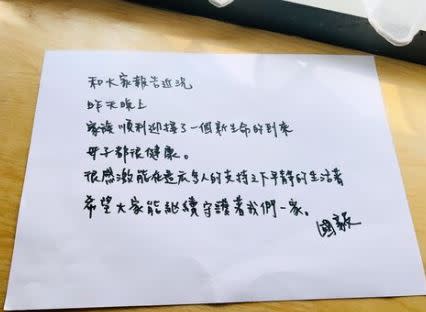 和大家報告近況
昨天晚上
家族順利迎接了一個新生命的到來
母子都很健康。
很感激能在這麼多人的支持之下平靜的生活著
希望大家能繼續守護著我們一家。
國毅